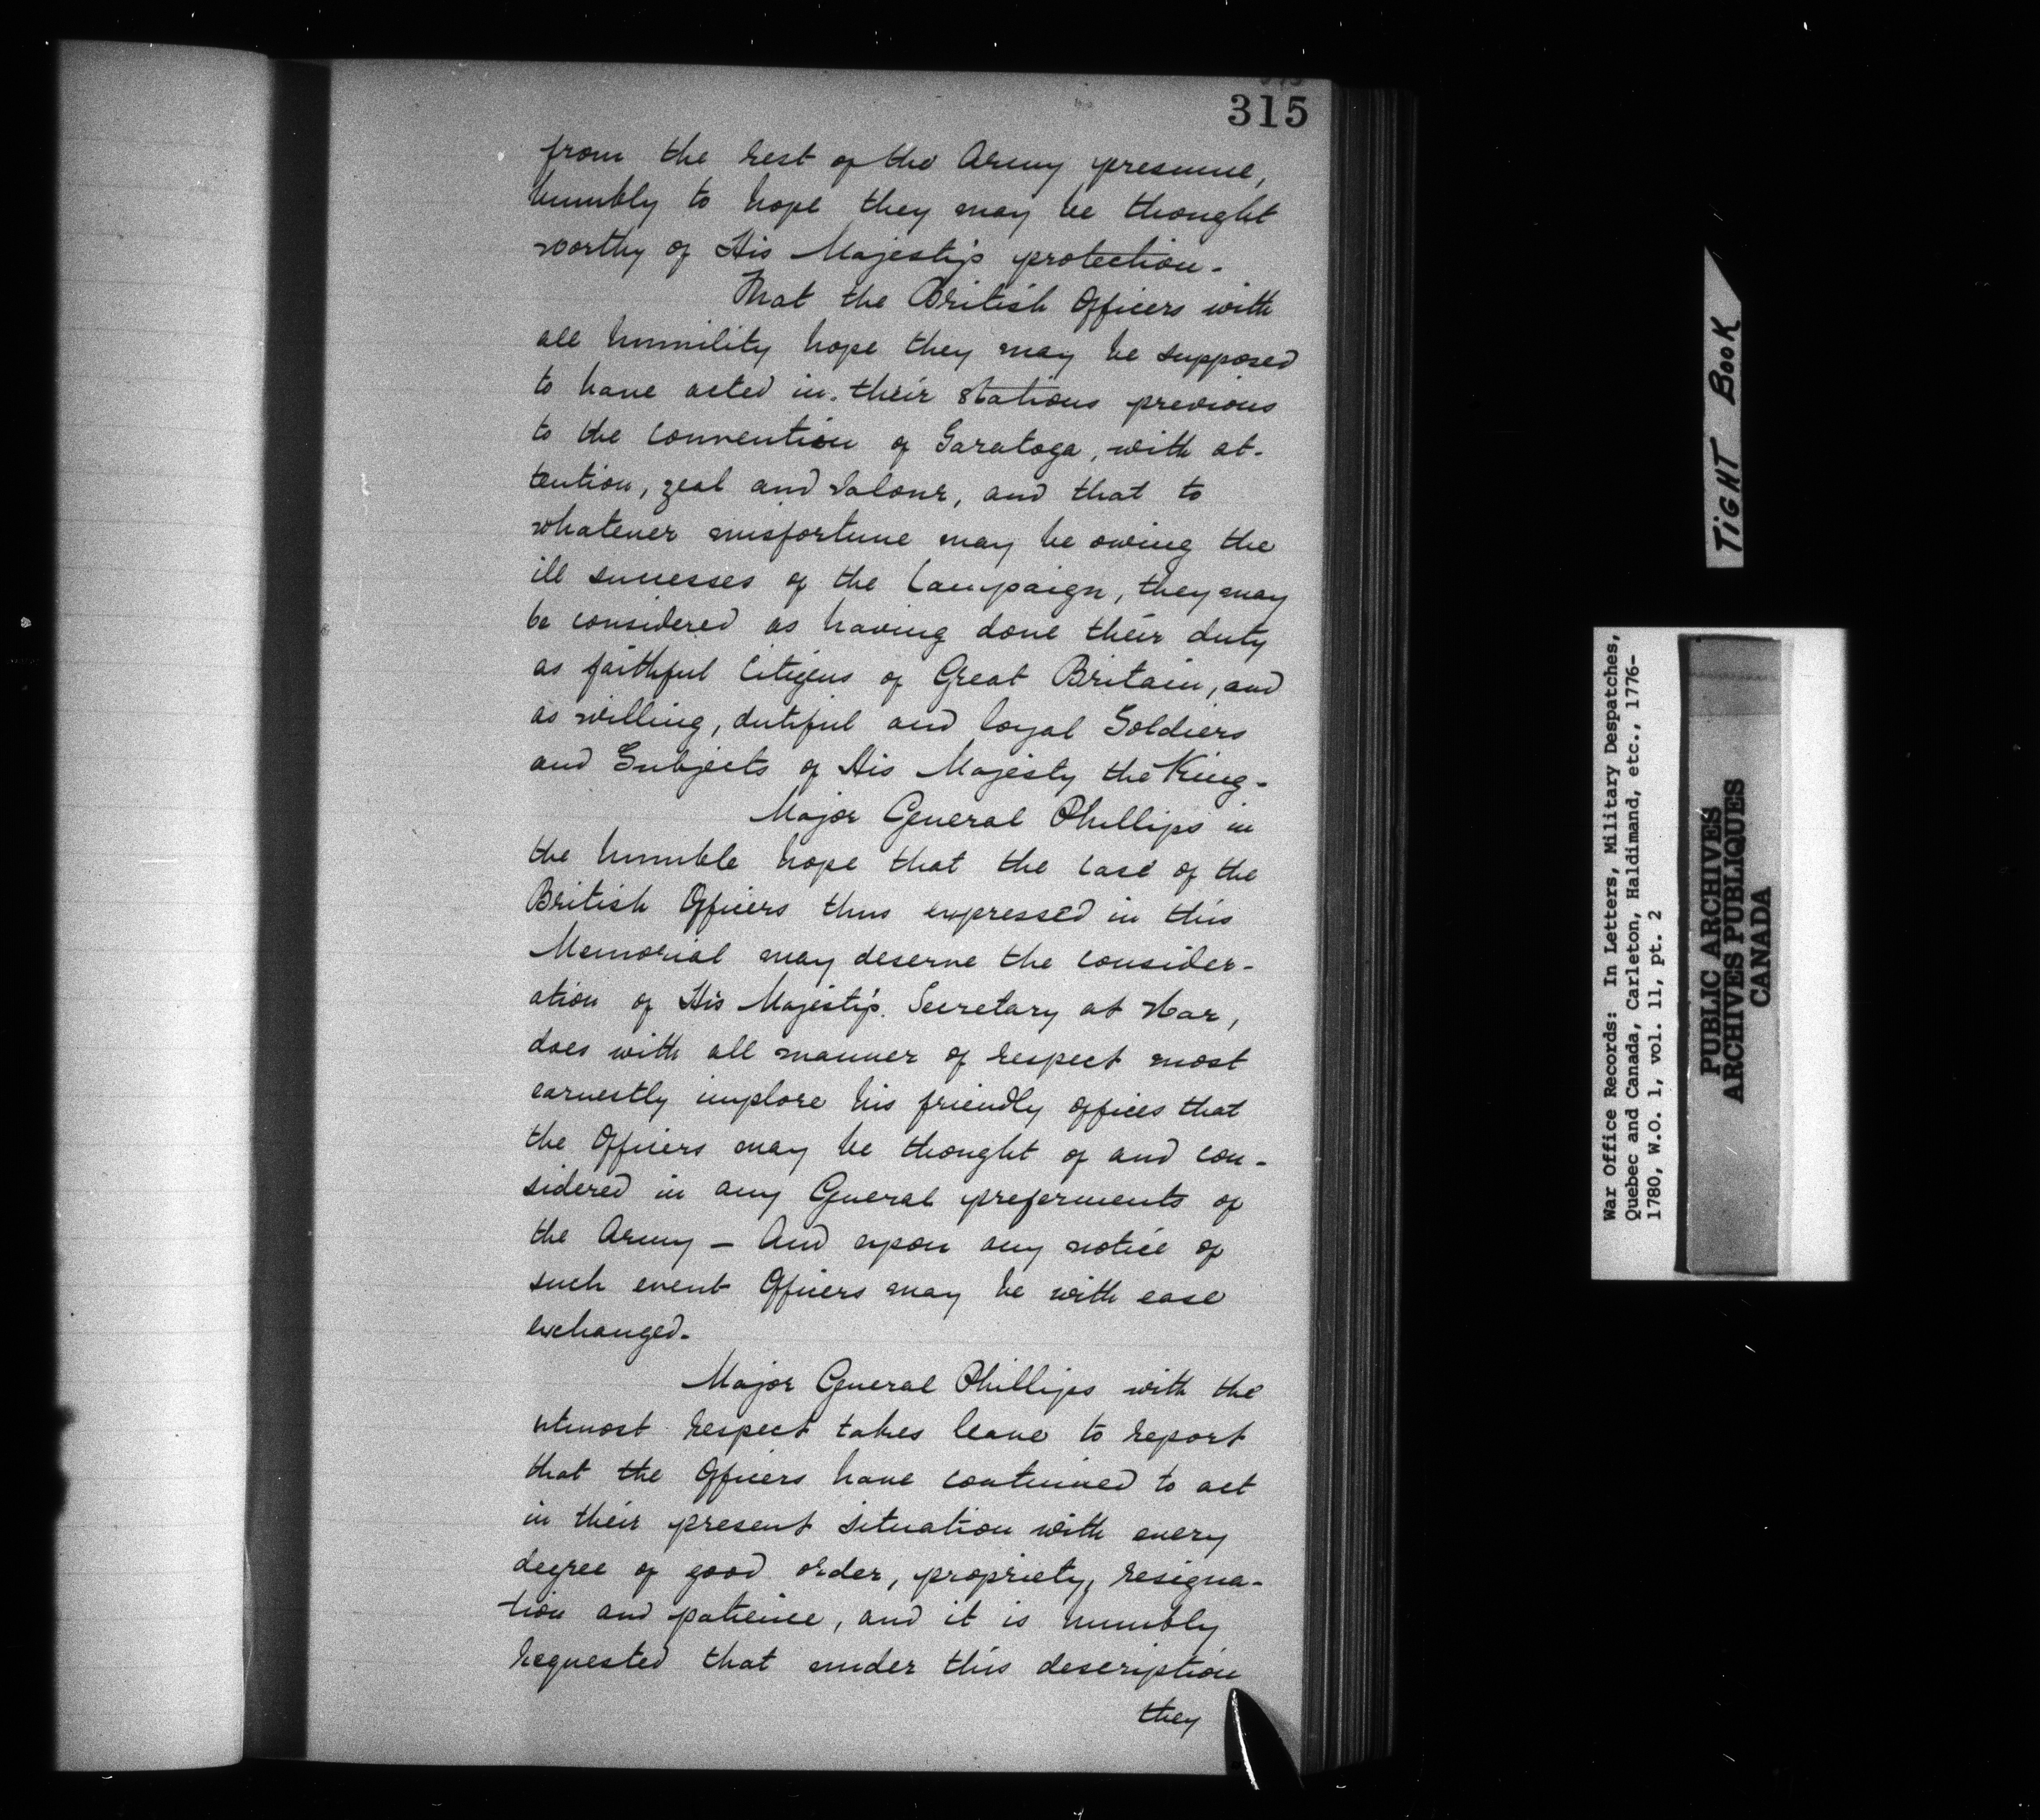 315
from the rest of the Army presume,
humbly to hope they may be thought
worthy of His Majesty's protection.
That the British Officers with
all humility hope they may be supposed
to have acted in their stations previous
to the convention of Saratoga, with at-
tention, zeal and valour, and that to
whatever misfortune may be owing the
ill successes of the Campaign, they may
be considered as having done their duty
as faithful Citizens of Great Britain, and
as willing, dutiful and loyal Soldiers
and Subjects of His Majesty the King.
Major General Phillips in
the humble hope that the case of the
British Officers thus expressed in this
Memorial may deserve the consider-
ation of His Majesty's Secretary at War,
does with all manner of respect most
earnestly implore his friendly offices that
the Officers may be thought of and con-
sidered in any General preferments of
the Army - And upon any notice of
such event Officers may be with ease
exchanged.
Major General Phillips with the
utmost respect takes leave to report
that the Officers have continued to act
in their present situation with every
degree of good order, propriety, resigna-
tion and patience, and it is humbly
requested that under this description
they
TIGHT BOOK
War Office Records: In Letters, Military Despatches,
Quebec and Canada, Carleton, Haldimand, etc., 1776-
1780, W.O. 1, vol. 11, pt. 2
PUBLIC ARCHIVES
ARCHIVES PUBLIQUES
CANADA